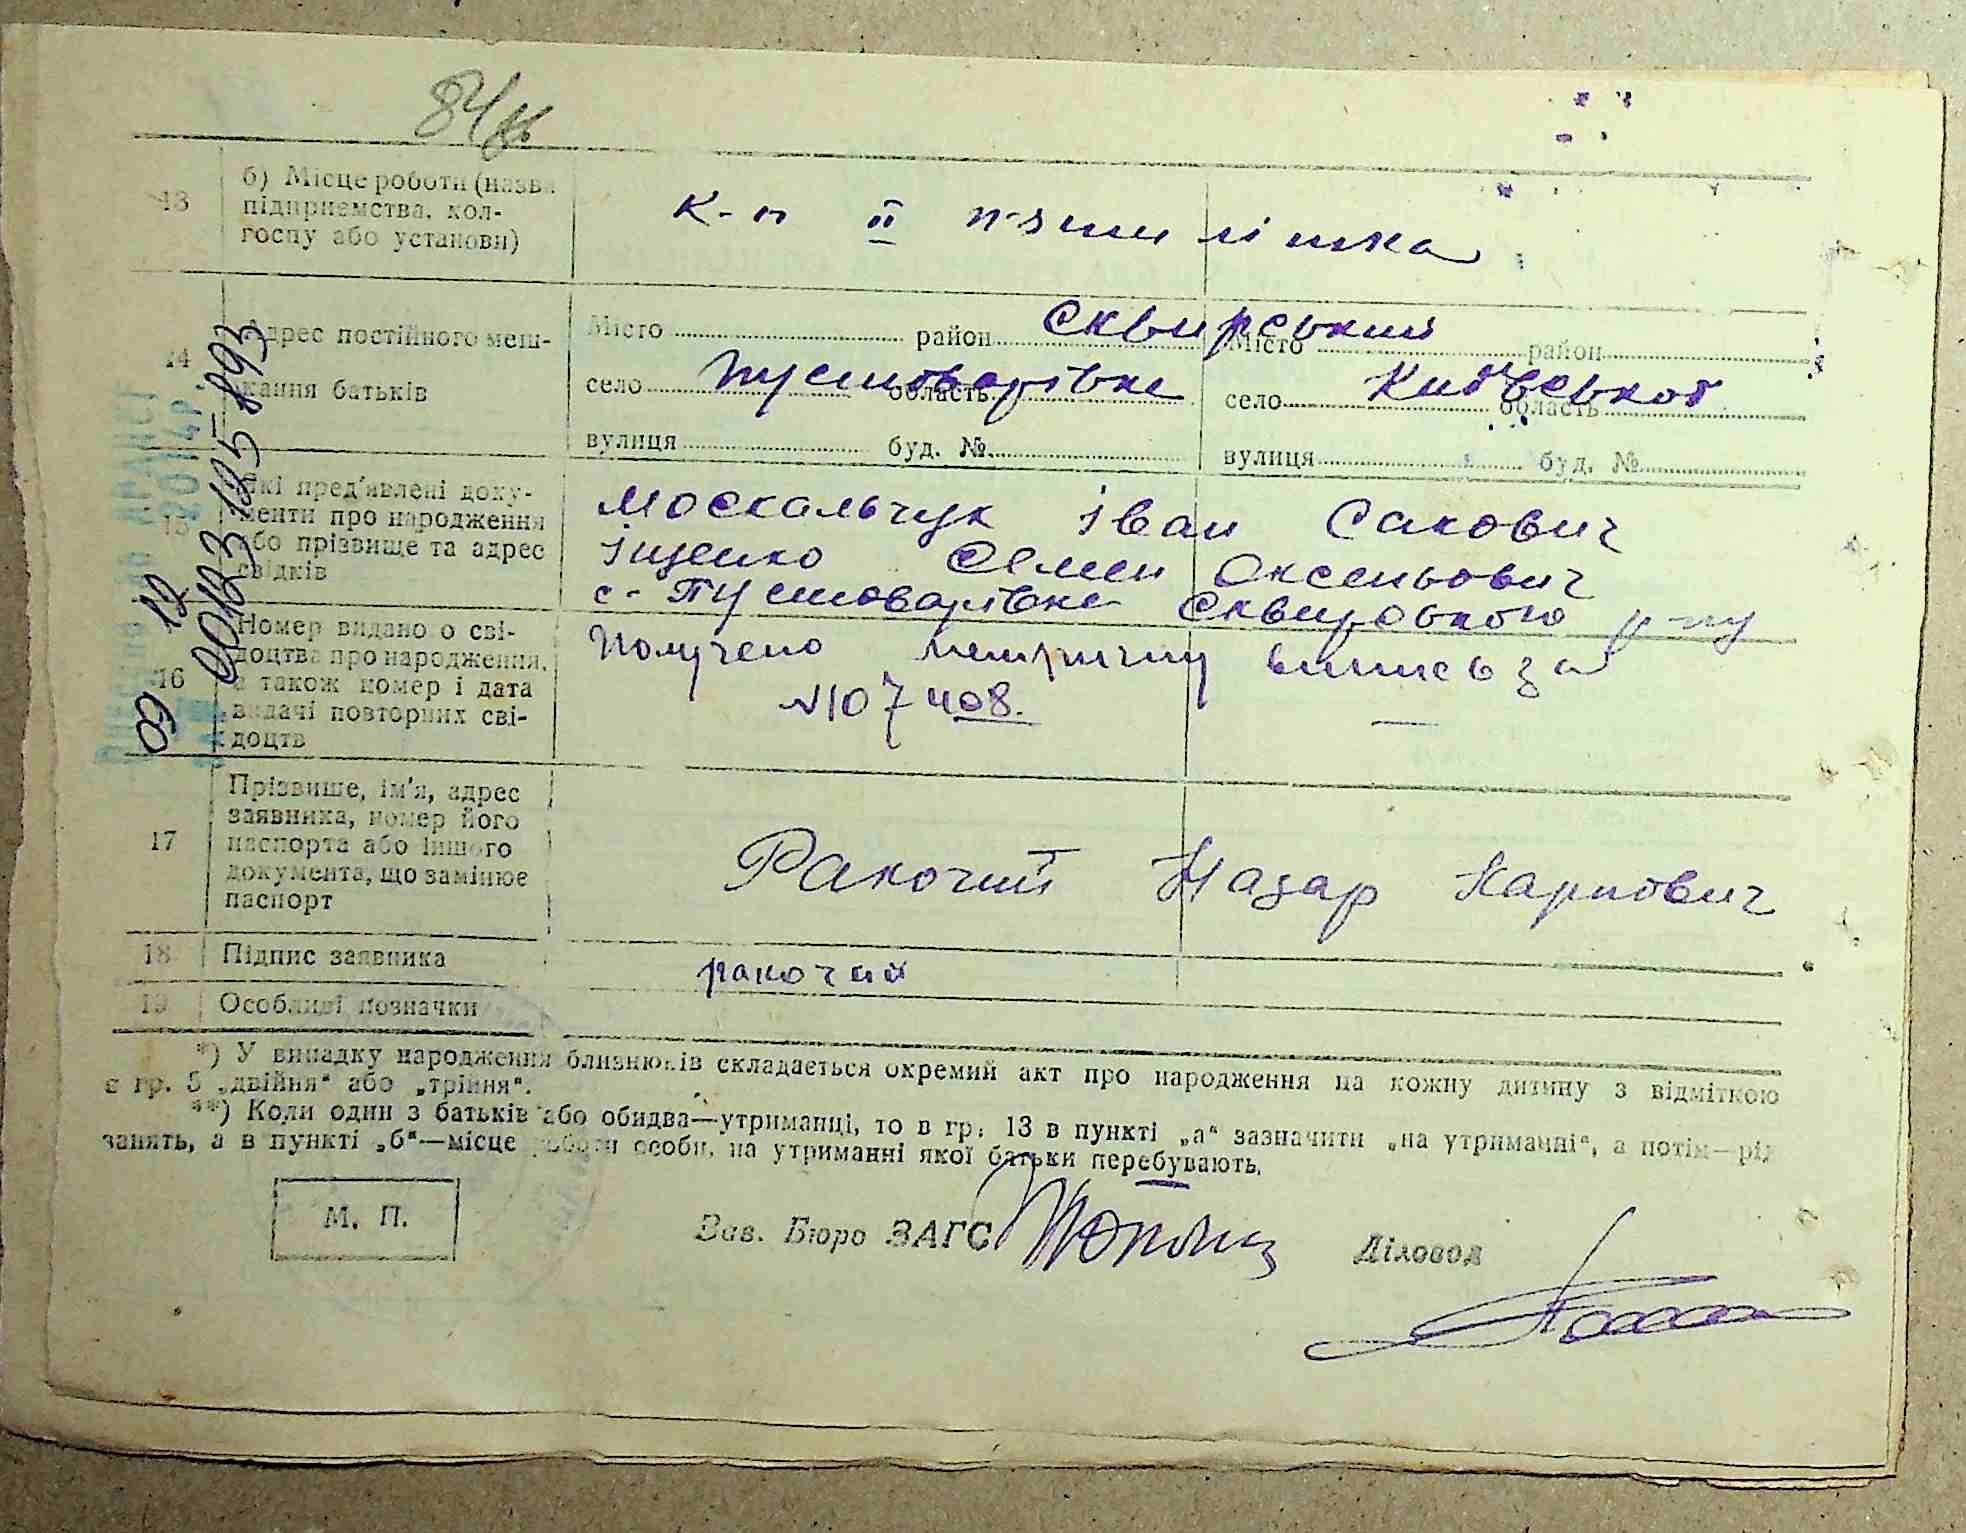 84
13 б) Місце роботи (назва
підприємства, кол-
госпу або установи)
к-п ІІ п-яти літка
14 Адрес постійного меш-
кання батьків
Місто район Сквирський Місто район
село Пустоварівка область село Київської область
вулиця буд. № вулиця буд. №
15 Які пред'явлені доку-
менти про народження
або прізвище та адрес
свідків
Москальчук Іван Сакович
Іщенко Семен Оксентович
с. Пустоварівка Сквирського р-ну
16 Номер видано о сві-
доцтва про народження,
а також номер і дата
видачі повторних сві-
доцтв
Получено метричну випись за
№107408.
09 12
00123125-893
2014р.
17 Прізвище, ім'я, адрес
заявника, номер його
паспорта або іншого
документа, що замінює
паспорт
Ракочий Назар Карпович
18 Підпис заявника
ракочий
19 Особливі позначки
*) У випадку народження близнюків складається окремий акт про народження на кожну дитину з відміткою
в гр. 5 „двійня“ або „трійня“.
**) Коли один з батьків або обидва—утриманці, то в гр. 13 в пункті „а“ зазначити „на утриманні“, а потім—рід
занять, а в пункті „б“—місце роботи особи, на утриманні якої батьки перебувають.
М. П.
Зав. Бюро ЗАГС
Діловод